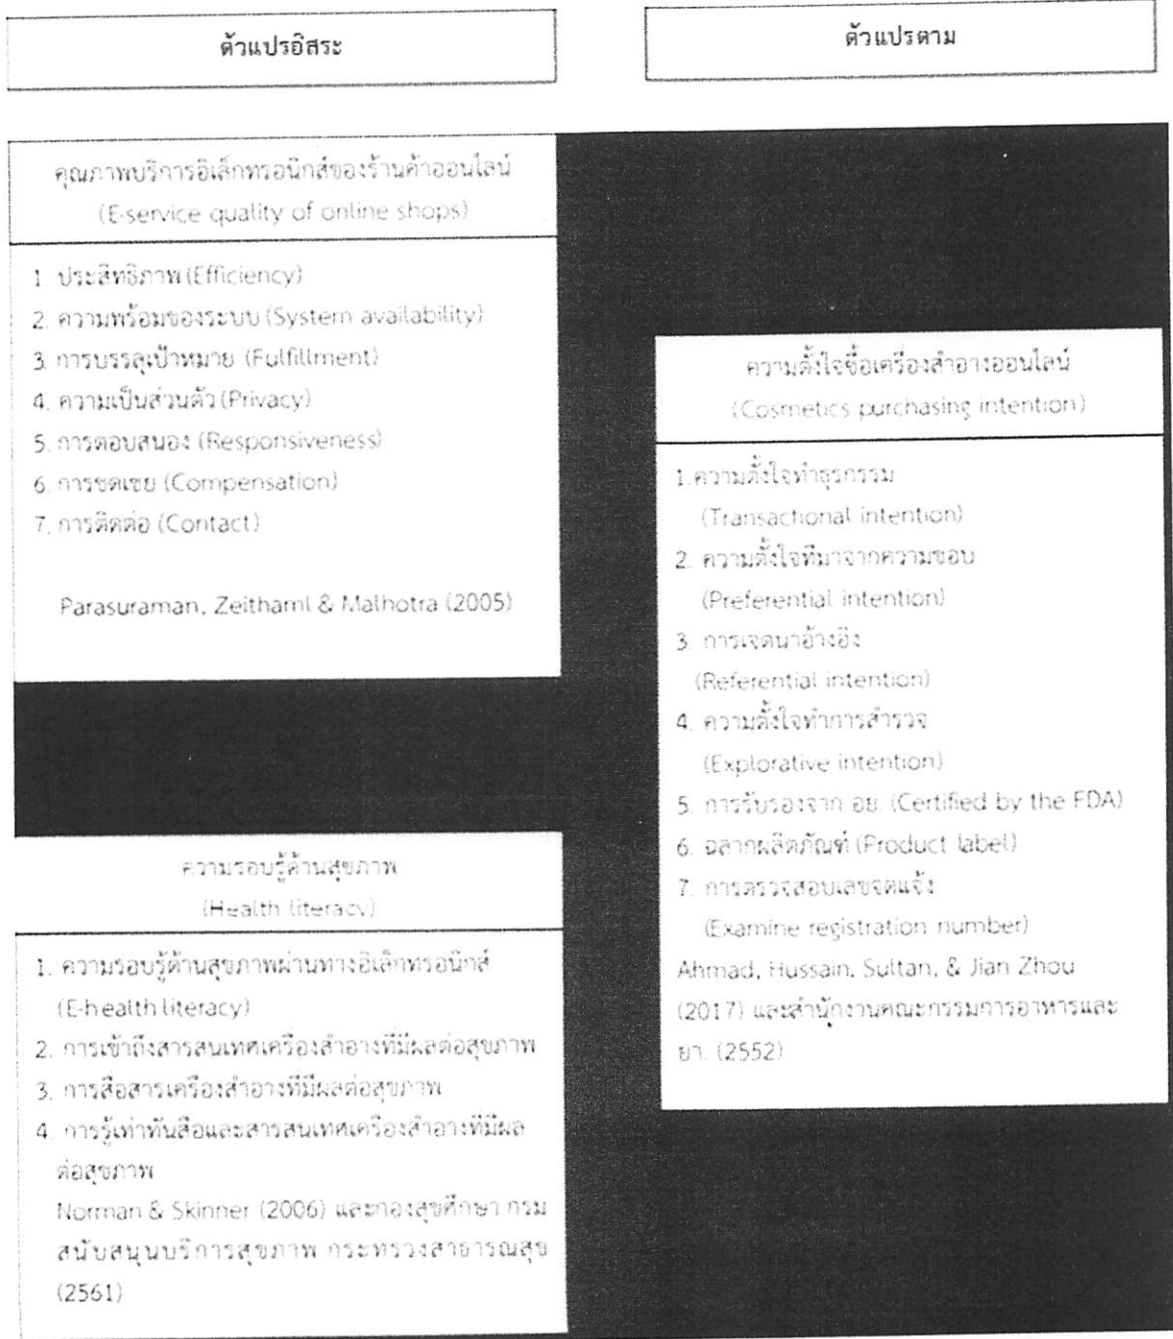 ตัวแปรอิสระ
ตัวแปรตาม
คุณภาพบริการอิเล็กทรอนิกส์ของร้านค้าออนไลน์
(E-service quality of online shops)
1. ประสิทธิภาพ (Efficiency)
2. ความพร้อมของระบบ (System availability)
3. การบรรลุเป้าหมาย (Fulfillment)
4. ความเป็นส่วนตัว (Privacy)
5. การตอบสนอง (Responsiveness)
6. การชดเชย (Compensation)
7. การติดต่อ (Contact)
Parasuraman, Zeithaml & Malhotra (2005)
ความรอบรู้ด้านสุขภาพ
(Health literacy)
1. ความรอบรู้ด้านสุขภาพผ่านทางอิเล็กทรอนิกส์
(E-health literacy)
2. การเข้าถึงสารสนเทศเครื่องสำอางที่มีผลต่อสุขภาพ
3. การสื่อสารเครื่องสำอางที่มีผลต่อสุขภาพ
4. การรู้เท่าทันสื่อและสารสนเทศเครื่องสำอางที่มีผล
ต่อสุขภาพ
Norman & Skinner (2006) และกองสุขศึกษา กรม
สนับสนุนบริการสุขภาพ กระทรวงสาธารณสุข
(2561)
ความตั้งใจซื้อเครื่องสำอางออนไลน์
(Cosmetics purchasing intention)
1.ความตั้งใจทำธุรกรรม
(Transactional intention)
2. ความตั้งใจที่มาจากความชอบ
(Preferential intention)
3. การเจตนาอ้างอิง
(Referential intention)
4. ความตั้งใจทำการสำรวจ
(Explorative intention)
5. การรับรองจาก อย. (Certified by the FDA)
6. ฉลากผลิตภัณฑ์ (Product label)
7. การตรวจสอบเลขจดแจ้ง
(Examine registration number)
Ahmad, Hussain, Sultan, & Jian Zhou
(2017) และสำนักงานคณะกรรมการอาหารและ
ยา. (2552)